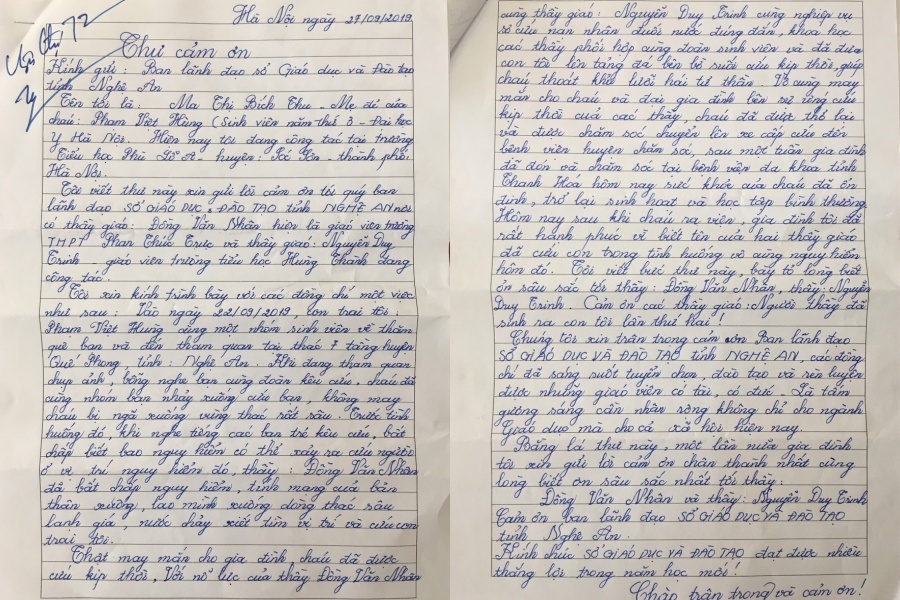 Hà Nội ngày 27/09/2019
Thư cảm ơn
Kính gửi: Ban lãnh đạo sở Giáo dục và Đào tạo
tỉnh Nghệ An
Tên tôi là: Ma Thị Bích Thu - Mẹ đẻ của
cháu: Phạm Việt Hùng (Sinh viên năm thứ 3 - Đại học
Y Hà Nội. Hiện nay tôi đang công tác tại trường
Tiểu học Phù - huyện: - thành phố
Hà Nội.
Tôi viết thư này xin gửi lời cảm ơn tới quý ban
lãnh đạo SỞ GIÁO DỤC & ĐÀO TẠO tỉnh NGHỆ AN nơi
có thầy giáo: Đồng Văn Nhân hiện là giáo viên trường
THPT Phan Thúc Trực và thầy giáo: Nguyễn Duy
Trinh - giáo viên trường tiểu học Hưng Thành đang
công tác.
Tôi xin kính trình bày với các đồng chí một việc
như sau: Vào ngày 22/09/2019, con trai tôi:
Phạm Việt Hùng cùng một nhóm sinh viên về thăm
quê bạn và đến tham quan tại thác 7 tầng huyện
Quế Phong, tỉnh: Nghệ An. Khi đang tham quan
chụp ảnh, bỗng nghe bạn cùng đoàn kêu cứu, cháu đã
cùng nhóm bạn nhảy xuống cứu bạn, không may
cháu bị ngã xuống vùng thác rất sâu. Trước tình
huống đó, khi nghe tiếng các bạn trẻ kêu cứu, bất
chấp biết bao nguy hiểm có thể xảy ra cứu người
ở vị trí nguy hiểm đó, thầy: Đồng Văn Nhân
đã bất chấp nguy hiểm, tính mạng của bản
thân xuống, lao mình xuống dòng thác sâu
lạnh giá, nước chảy xiết tìm vị trí và cứu con
trai tôi.
Thật may mắn cho gia đình cháu đã được
cứu kịp thời, Với nỗ lực của thầy Đồng Văn Nhân
cùng thầy giáo: Nguyễn Duy Trinh cùng nghiệp vụ
sơ cứu nạn nhân đuối nước đúng đắn, khoa học
các thầy phối hợp cùng đoàn sinh viên và đã đưa
con tôi lên tảng đá bên bờ suối cứu kịp thời, giúp
cháu thoát khỏi lưỡi hái tử thần. Vô cùng may
mắn cho cháu và đại gia đình bên sự ứng cứu
kịp thời của các thầy, cháu đã được thở lại
và được chăm sóc chuyển lên xe cấp cứu đến
bệnh viện huyện chăm sóc, sau một tuần gia đình
đã đón và chăm sóc tại bệnh viện đa khoa tỉnh
Thanh Hoá hôm nay sức khỏe của cháu đã ổn
định, trở lại sinh hoạt và học tập bình thường.
Hôm nay sau khi cháu ra viện, gia đình tôi đã
rất hạnh phúc vì biết tên của hai thầy giáo
đã cứu con trong tình huống vô cùng nguy hiểm
hôm đó. Tôi viết bức thư này, bày tỏ lòng biết
ơn sâu sắc tới thầy: Đồng Văn Nhân, thầy: Nguyễn
Duy Trinh. Cảm ơn các thầy giáo: Người thầy đã
sinh ra con tôi lần thứ hai!
Chúng tôi xin trân trọng cảm ơn Ban lãnh đạo
SỞ GIÁO DỤC VÀ ĐÀO TẠO tỉnh NGHỆ AN, các đồng
chí đã sáng suốt tuyển chọn, đào tạo và rèn luyện
được những giáo viên có tài, có đức. Là tấm
gương sáng cần nhân rộng không chỉ cho ngành
Giáo dục mà cho cả xã hội hiện nay.
Bằng lá thư này, một lần nữa gia đình
tôi xin gửi lời cảm ơn chân thành nhất cùng
lòng biết ơn sâu sắc nhất tới thầy:
Đồng Văn Nhân và thầy: Nguyễn Duy Trinh
Cảm ơn ban lãnh đạo SỞ GIÁO DỤC VÀ ĐÀO TẠO
tỉnh Nghệ An.
Kính chúc SỞ GIÁO DỤC VÀ ĐÀO TẠO đạt được nhiều
thắng lợi trong năm học mới!
Chào trân trọng và cảm ơn!